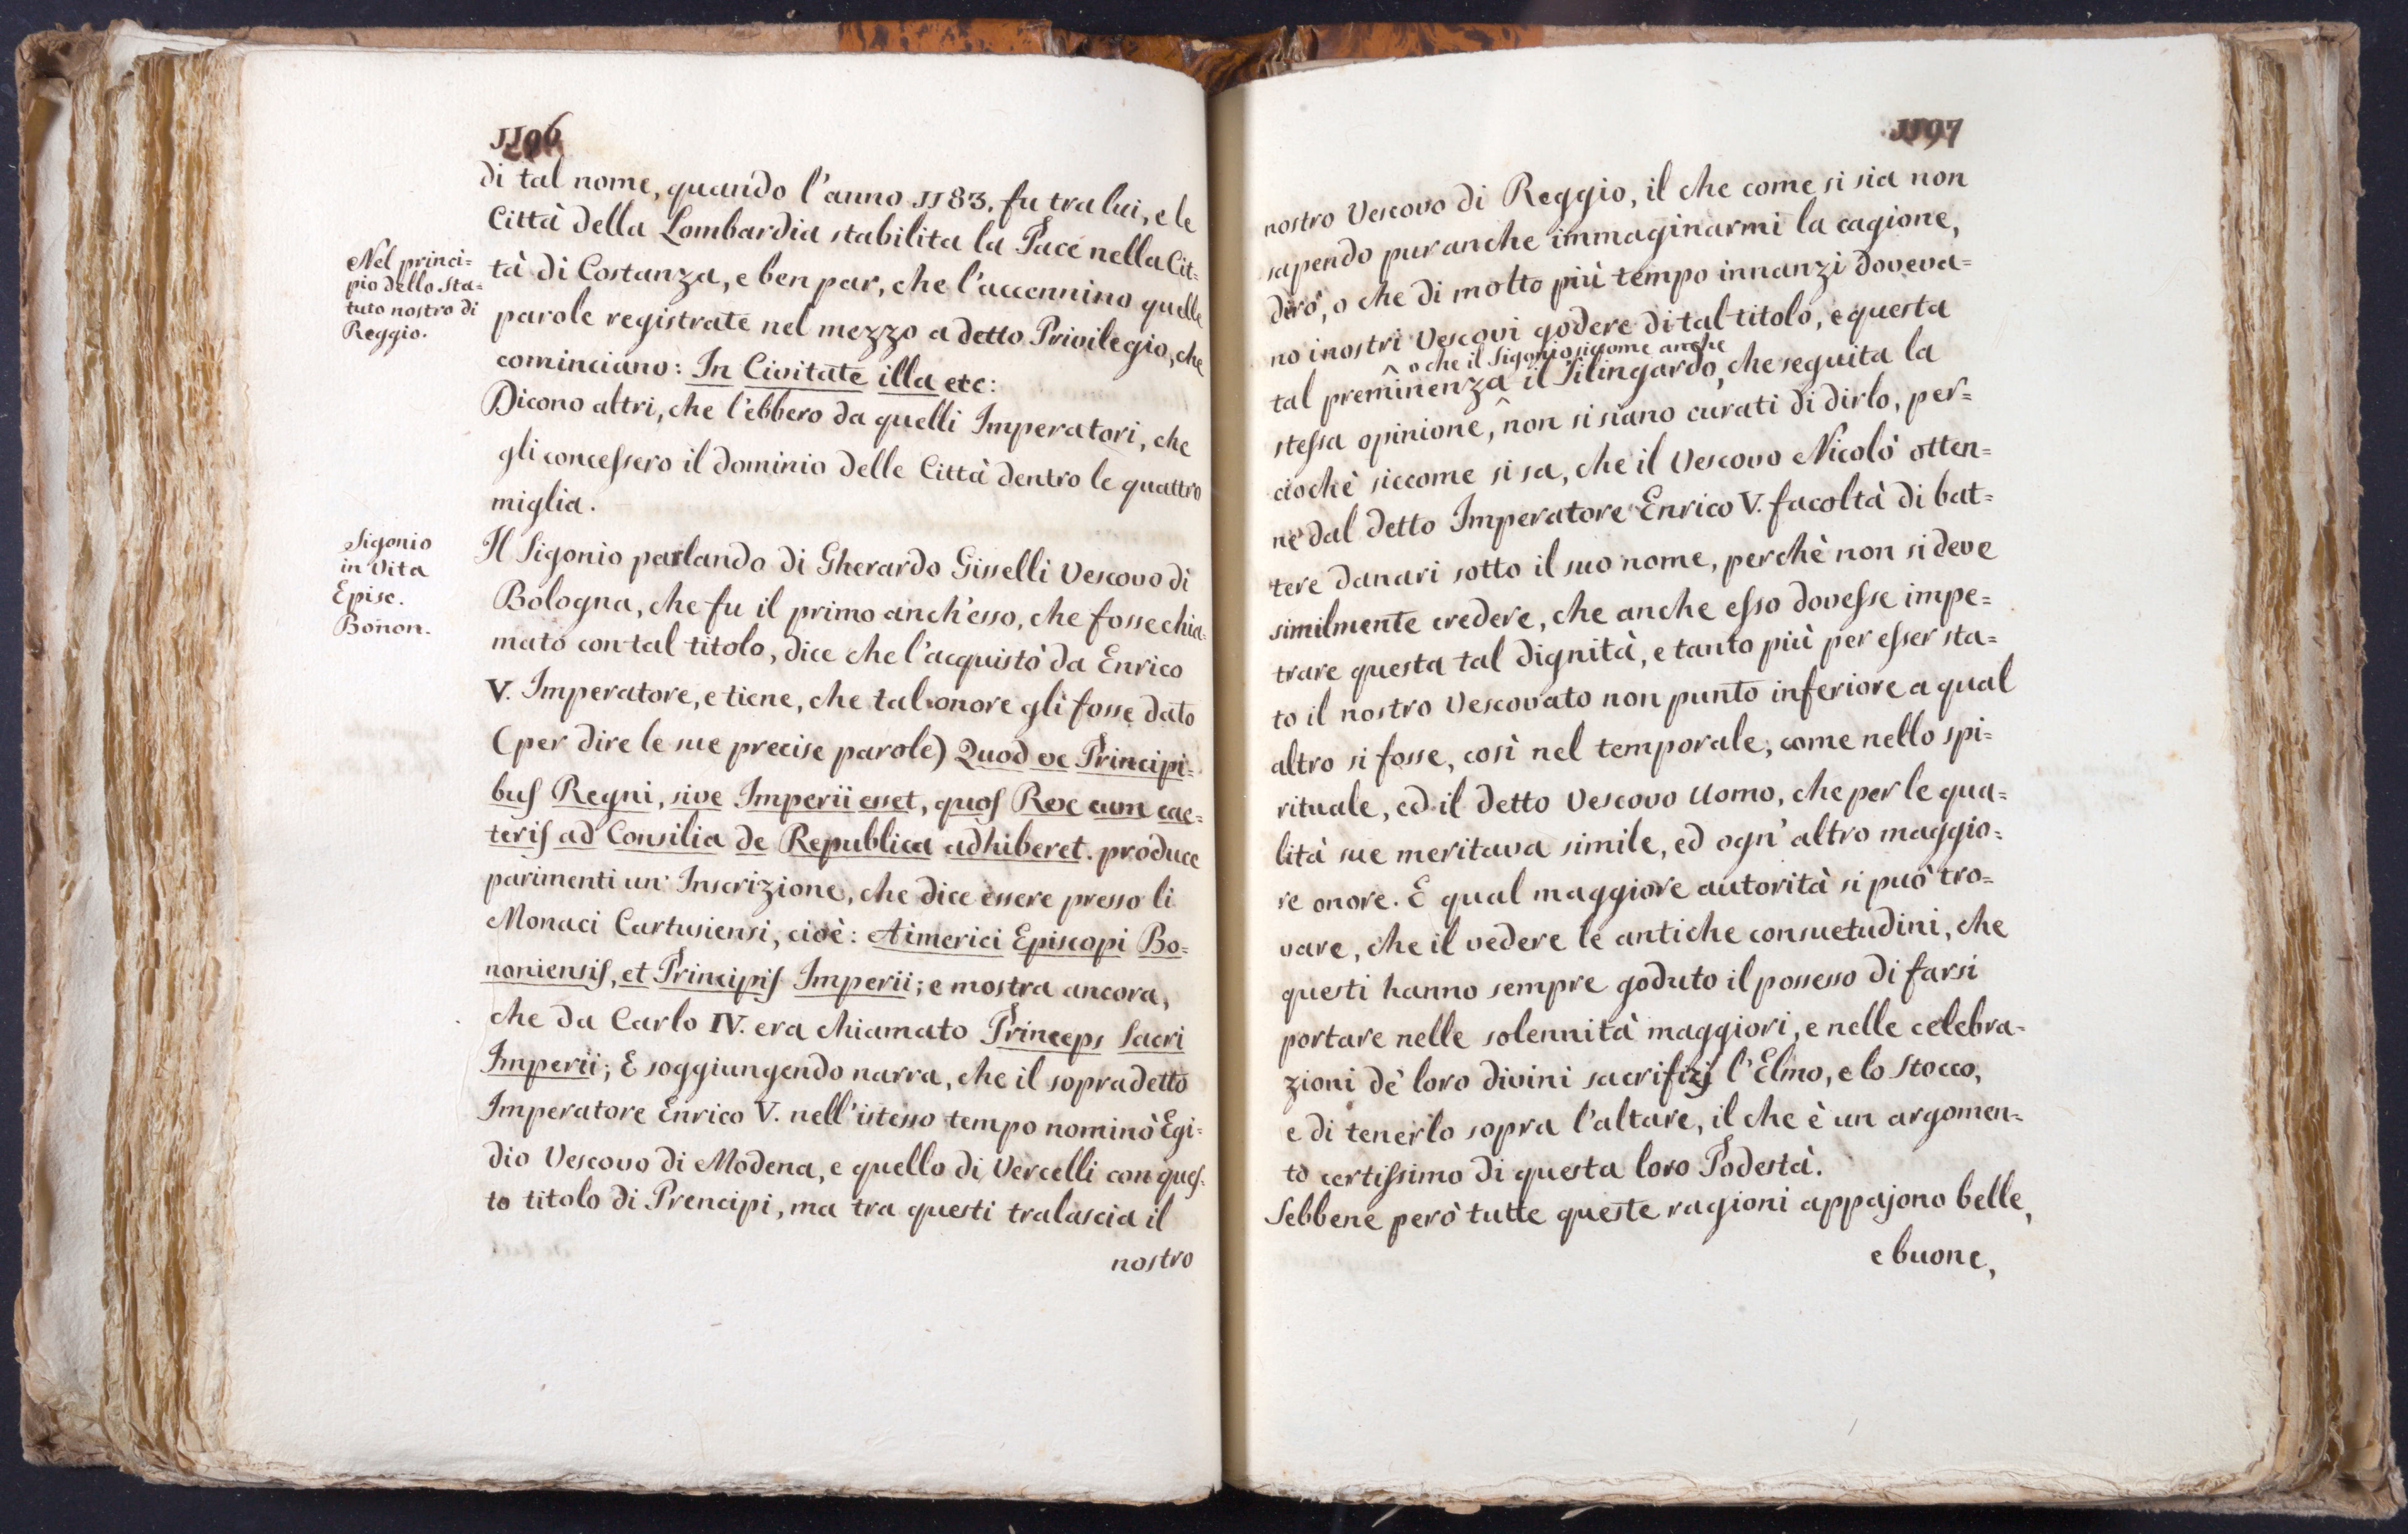 1196
di tal nome, quando l'anno 1183. fu tra lui, e le
Città della Lombardia stabilita la Pace nella Cit=
tà di Costanza, e ben par, che l'accennino quelle
parole registrate nel mezzo a detto Privilegio, che
cominciano: In Civitate illa etc:
Dicono altri, che l'ebbero da quelli Imperatori, che
gli concessero il dominio delle Città dentro le quattro
miglia.
Il Sigonio parlando di Gherardo Gisselli Vescovo di
Bologna, che fu il primo anch'esso, che fosse chia=
mato con tal titolo, dice che l'acquistò da Enrico
V. Imperatore, e tiene, che tal onore gli fosse dato
(per dire le sue precise parole) Quod ex Principi=
bus Regni, sive Imperii esset, quos Rex cum cae=
teris ad Consilia de Republica adhiberet. produce
parimenti un' Inscrizione, che dice essere presso li
Monaci Cartusiensi, cioè: Aimerici Episcopi Bo=
noniensis, et Principis Imperii; e mostra ancora,
che da Carlo IV. era chiamato Princeps Sacri
Imperii; E soggiungendo narra, che il sopradetto
Imperatore Enrico V. nell'istesso tempo nominò Egi=
dio Vescovo di Modena, e quello di Vercelli con ques=
to titolo di Prencipi, ma tra questi tralascia il
nostro
Nel princi=
pio dello Sta=
tuto nostro di
Reggio.
Sigonio
in Vita
Episc.
Bonon.
1197
nostro Vescovo di Reggio, il che come si sia non
sapendo pur anche immaginarmi la cagione,
dirò, o che di molto più tempo innanzi doveva=
no i nostri Vescovi godere di tal titolo, e questa
o che il Sigonio siccome anche
tal preminenza il Silingardo, che seguita la
stessa opinione, non si siano curati di dirlo, per=
ciochè siccome si sa, che il Vescovo Nicolò otten=
ne dal detto Imperatore Enrico V. facoltà di bat=
tere danari sotto il suo nome, perchè non si deve
similmente credere, che anche esso dovesse impe=
trare questa tal dignità, e tanto più per esser sta=
to il nostro Vescovato non punto inferiore a qual
altro si fosse, così nel temporale, come nello spi=
rituale, ed il detto Vescovo Uomo, che per le qua=
lità sue meritava simile, ed ogn' altro maggio=
re onore. E qual maggiore autorità si può tro=
vare, che il vedere le antiche consuetudini, che
questi hanno sempre goduto il possesso di farsi
portare nelle solennità maggiori, e nelle celebra=
zioni dè loro divini sacrifizj l'Elmo, e lo Stocco,
e di tenerlo sopra l'altare, il che è un argomen=
to certissimo di questa loro Podestà.
Sebbene però tutte queste ragioni appajono belle,
e buone,